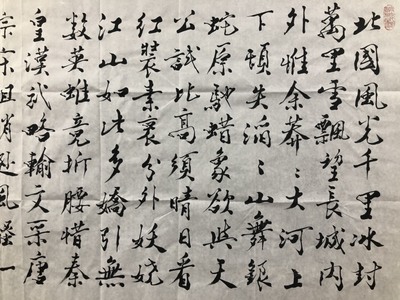 北國風光千里冰封
萬里雪飄望長城内
外惟余莽〻大河上
下頓失滔〻山舞銀
蛇原馳蜡象欲與天
公試比高須晴日看
紅裝素裹分外妖嬈
江山如此多嬌引無
數英雄竞折腰惜秦
皇漢武略輸文采唐
宗宋且稍遜風騷一